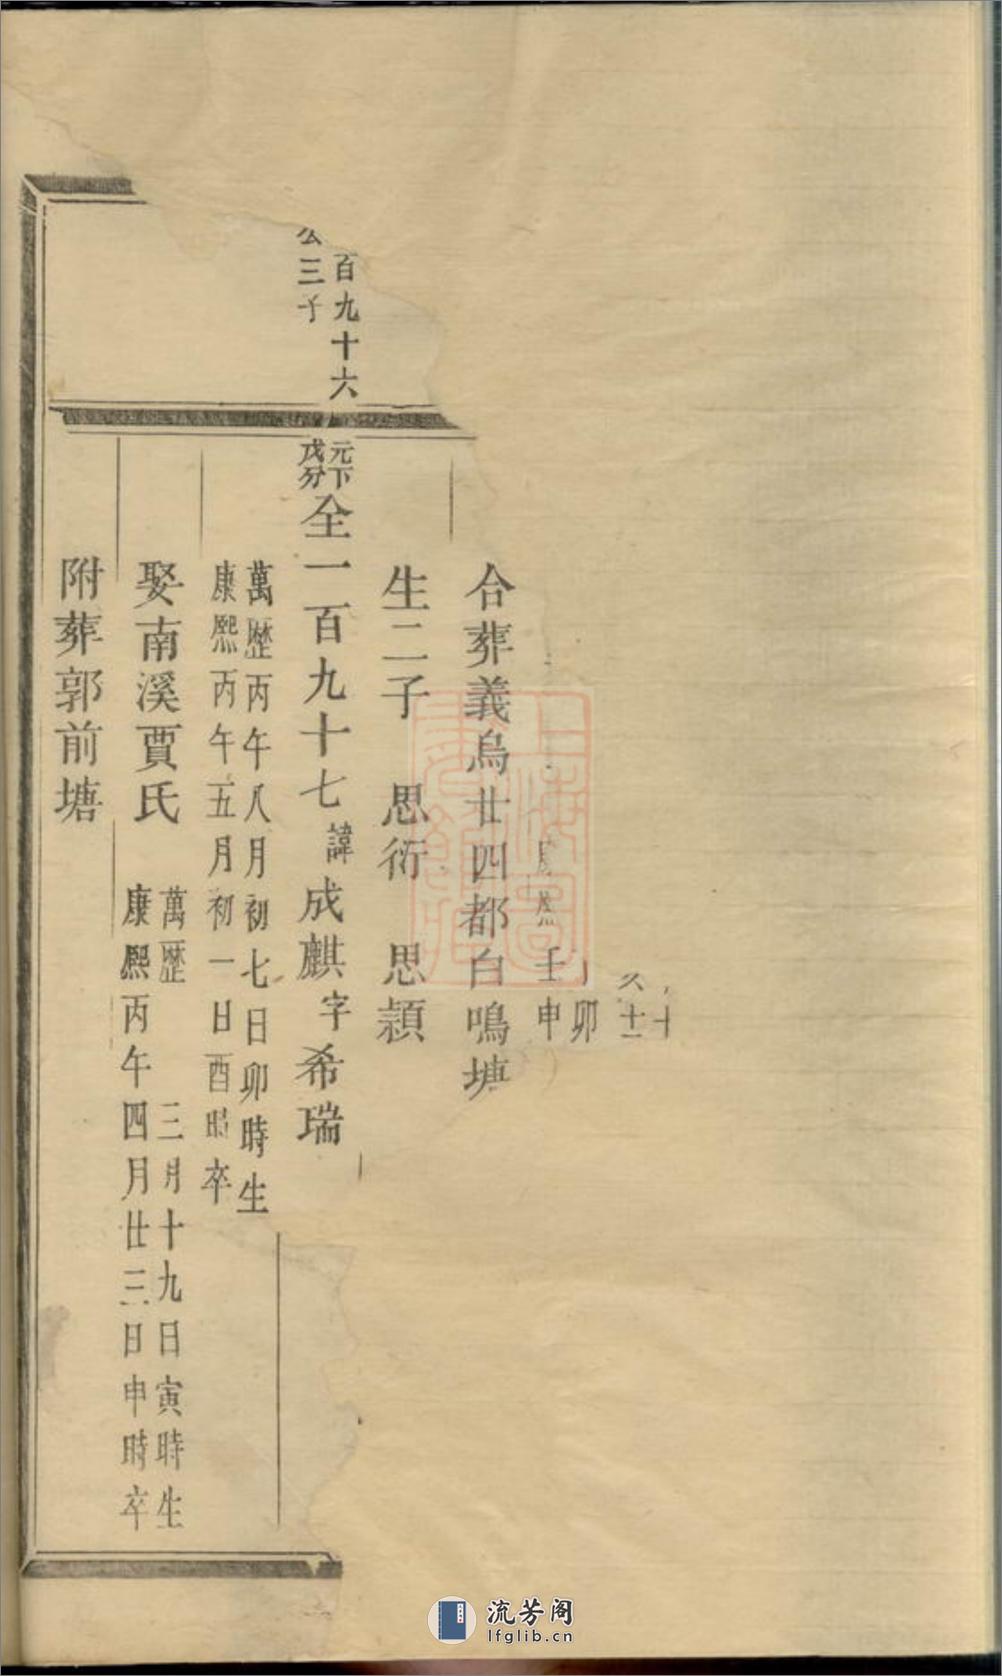 十
十一
卯
壬申
合葬義烏廿四都白鳴塘
生二子　思衍　思穎
百九十六
公三子
元下
戊分
全一百九十七諱成麒字希瑞
萬歷丙午八月初七日卯時生
康熙丙午五月初一日酉時卒
娶南溪賈氏
萬歷　三月十九日寅時生
康熙丙午四月廿三日申時卒
附葬郭前塘
上海圖書館藏
流芳阁
lfglib.cn